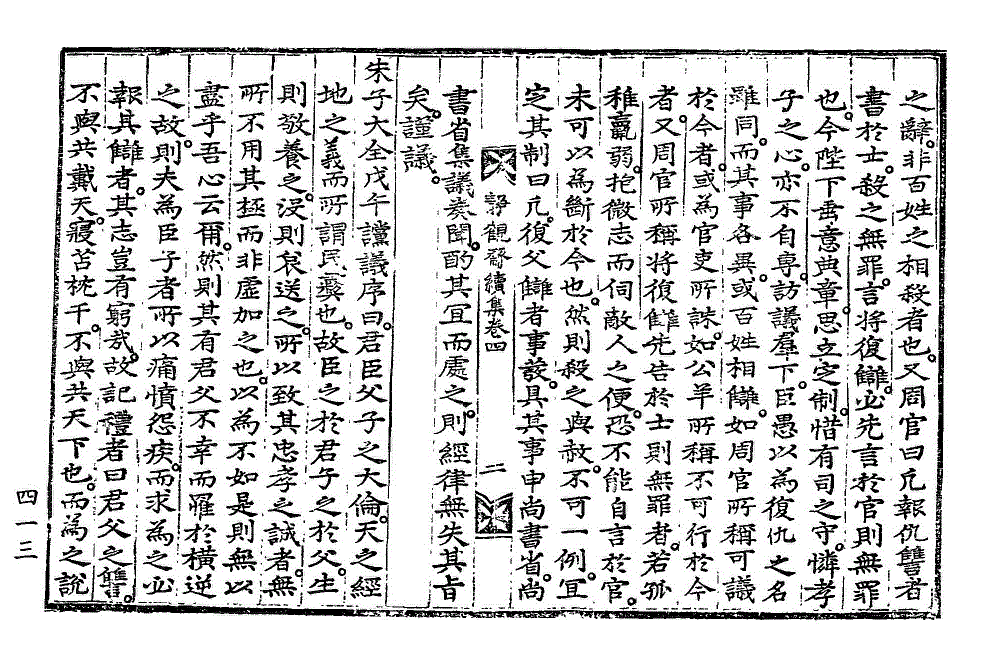 之辭。非百姓之相殺者也。又周官曰凡報仇讐者
書於士。殺之無罪。言將復讎。必先言於官則無罪
也。今陛下垂意典章。思立定制。惜有司之守。憐孝
子之心。亦不自專。訪議羣下。臣愚以為復仇之名
雖同。而其事各異。或百姓相讎。如周官所稱可議
於今者。或為官吏所誅。如公羊所稱不可行於今
者。又周官所稱將復讎。先告於士則無罪者。若孤
稚羸弱。抱微志而伺敵人之便。恐不能自言於官。
未可以為斷於今也。然則殺之與赦。不可一例。宜
定其制曰凡復父讎者。事發。具其事申尚書省。尚
靜觀齋續集卷四
二
書省集議奏聞。酌其宜而處之。則經律無失其旨
矣。謹議。
朱子大全戊午讜議序曰。君臣父子之大倫。天之經
地之義而所謂民彝也。故臣之於君。子之於父。生
則敬養之。沒則哀送之。所以致其忠孝之誠者。無
所不用其極而非虛加之也。以為不如是則無以
盡乎吾心云爾。然則其有君父不幸而罹於橫逆
之故。則夫為臣子者所以痛憤怨疾。而求為之必
報其讎者。其志豈有窮哉。故記禮者曰君父之讐。
不與共戴天。寢苫枕干。不與共天下也。而為之說
四一三